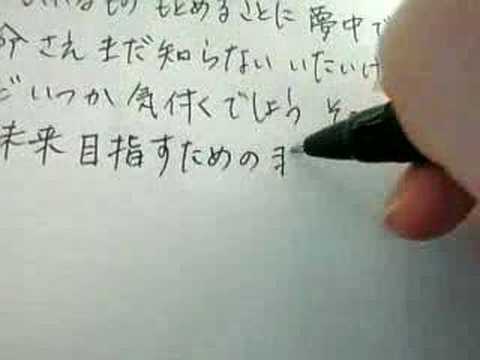 れるもの もとめることに 夢中で
命さえ まだ知らない いたいけ
どいつか 気付くでしょう そ
未来 目指すための